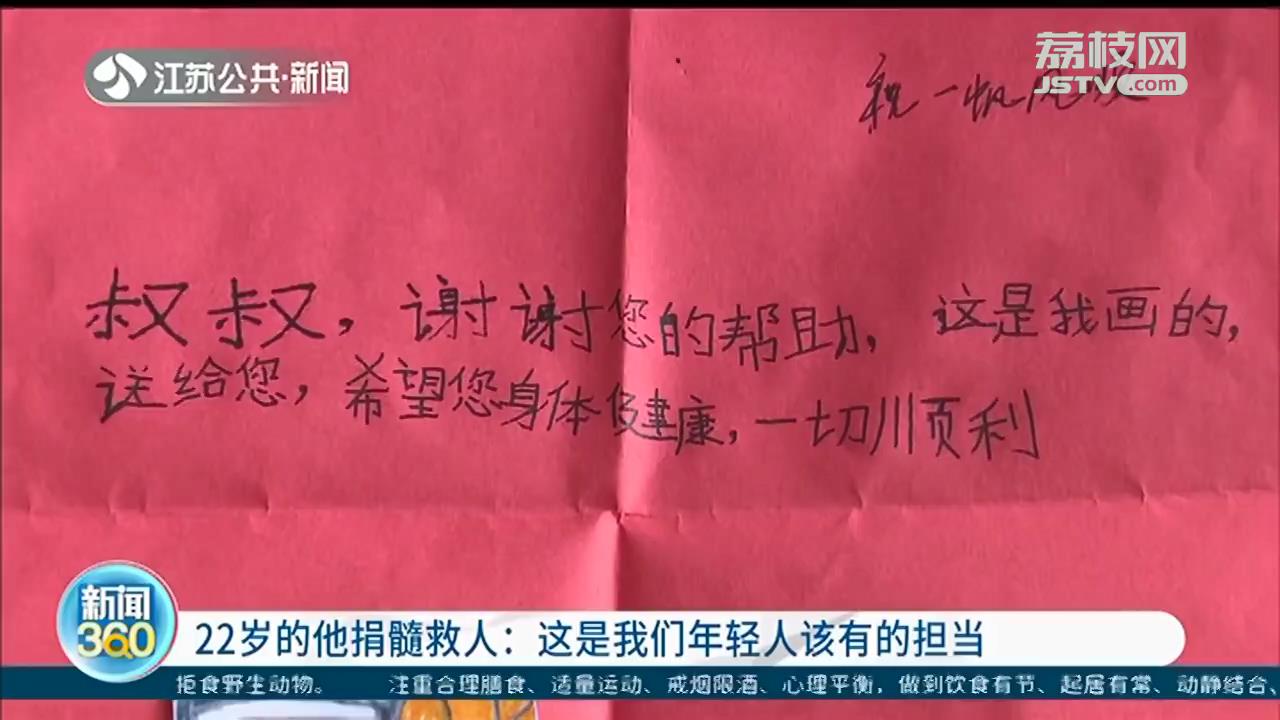 江苏公共·新闻
荔枝网
JSTV.com
祝一帆风顺
叔叔，谢谢您的帮助，这是我画的，
送给您，希望您身体健康，一切顺利
新闻
360
22岁的他捐髓救人：这是我们年轻人该有的担当
拒食野生动物。 注重合理膳食、适量运动、戒烟限酒、心理平衡，做到饮食有节、起居有常、动静结合、